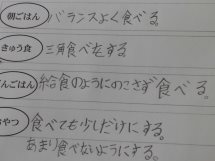 朝ごはん バランスよく食べる。
きゅう食 三角食べをする
ごはん 給食のようにのこさず食べる。
おやつ 食べても少しだけにする。
あまり食べないようにする。